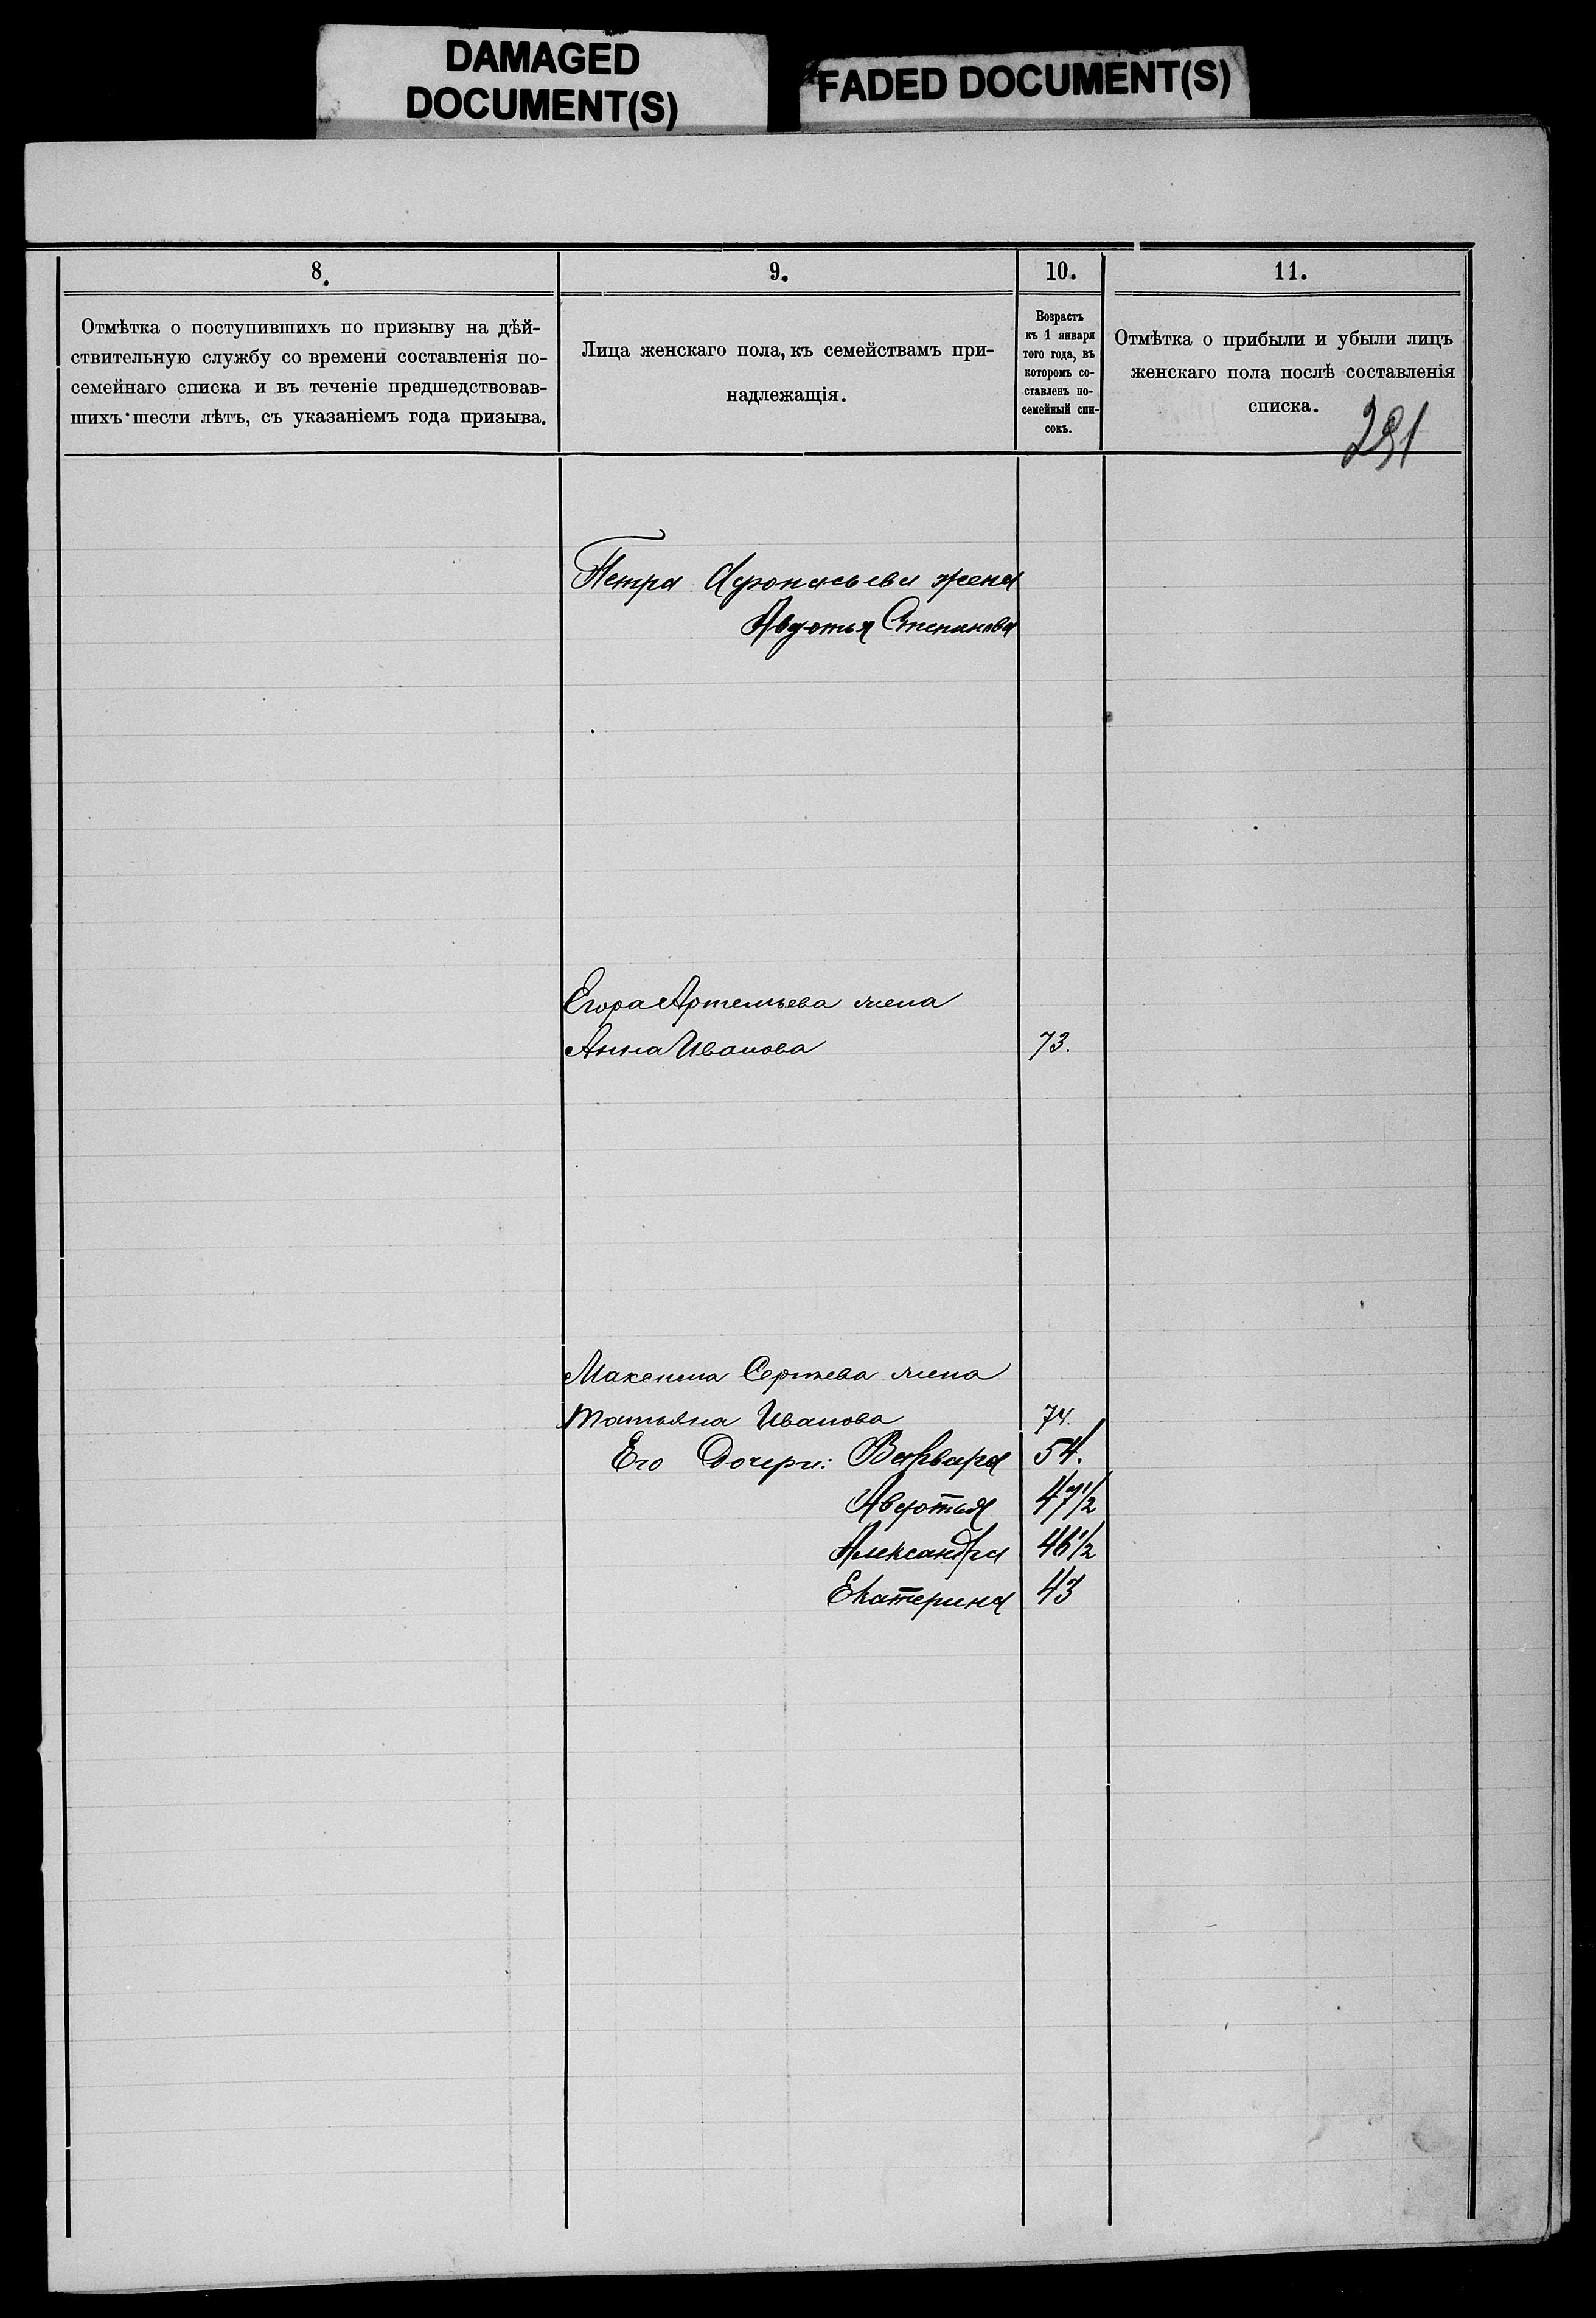 DAMAGED
DOCUMENT(S)
FADED DOCUMENT(S)
8.
Отмѣтка о поступившихъ по призыву на дѣй-
ствительную службу со времени составленія по-
семейнаго списка и въ теченіе предшедствовав-
шихъ шести лѣтъ, съ указаніемъ года призыва.
9.
Лица женскаго пола, къ семействамъ при-
надлежащія.
10.
Возрастъ
къ 1 января
того года, въ
которомъ со-
ставленъ по-
семейный спи-
сокъ.
11.
Отмѣтка о прибыли и убыли лицъ
женскаго пола послѣ составленія
списка.
291
Петра Афонасьева жена
Авдотья Степанова
Егора Артемьева жена
Анна Иванова 73.
Максима Сергеева жена
Татьяна Иванова 74.
Его Дочери: Варвара 54.
Авдотья 47 1/2
Александра 46 1/2
Екатерина 43